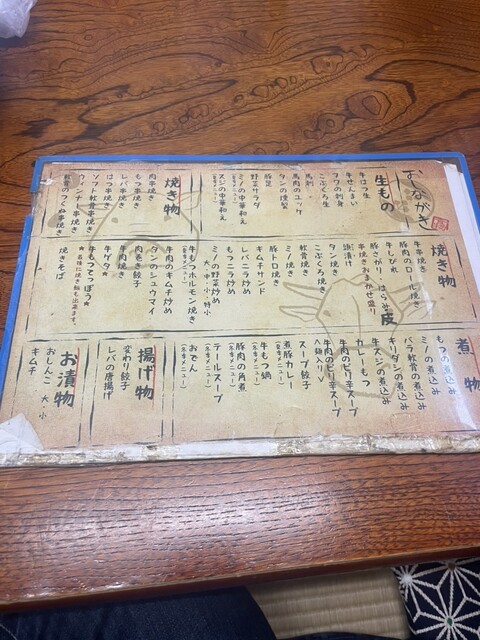 おしながき
生もの
牛はつ生
牛せんまい
フワの刺身
こぶくろ生
馬刺
馬肉のユッケ
タンの燻製
豚足
野菜サラダ
ミノの中華和え
スジの中華和え
焼き物
肉串焼き
もつ串焼き
レバ串焼き
はつ串焼き
ソフト軟骨串焼き
ウィンナー串焼き
軟骨のつくね串焼き
焼き物
牛串焼き
豚肉のロール焼き
牛しび れ
豚さがり・はらみ皮
串焼きおまかせ盛り
頭漬け
タン焼き
こぶくろ焼き
軟骨焼き
ミノ焼き
豚トロ焼き
キムチサンド
レバニラ炒め
もつニラ炒め
ミノの野菜炒め
大・中・小・特小
牛もつホルモン焼き
牛肉のキムチ炒め
タンのシュウマイ
肉巻き餃子
牛肉焼き
牛ゲタ★
牛もつてっぽう★
焼きそば
煮物
もつの煮込み
ミノの煮込み
バラ軟骨の煮込み
キリダンの煮込み
牛スジンの煮込み
カレーもつ
牛肉のピリ辛スープ
牛肉のピリ辛スープ
スープ餃子
煮豚カレー
牛もつ鍋
豚肉の角煮
テールスープ
おでん
揚げ物
変わり餃子
レバの唐揚げ
お漬物
おしんこ 大・小
キムチ